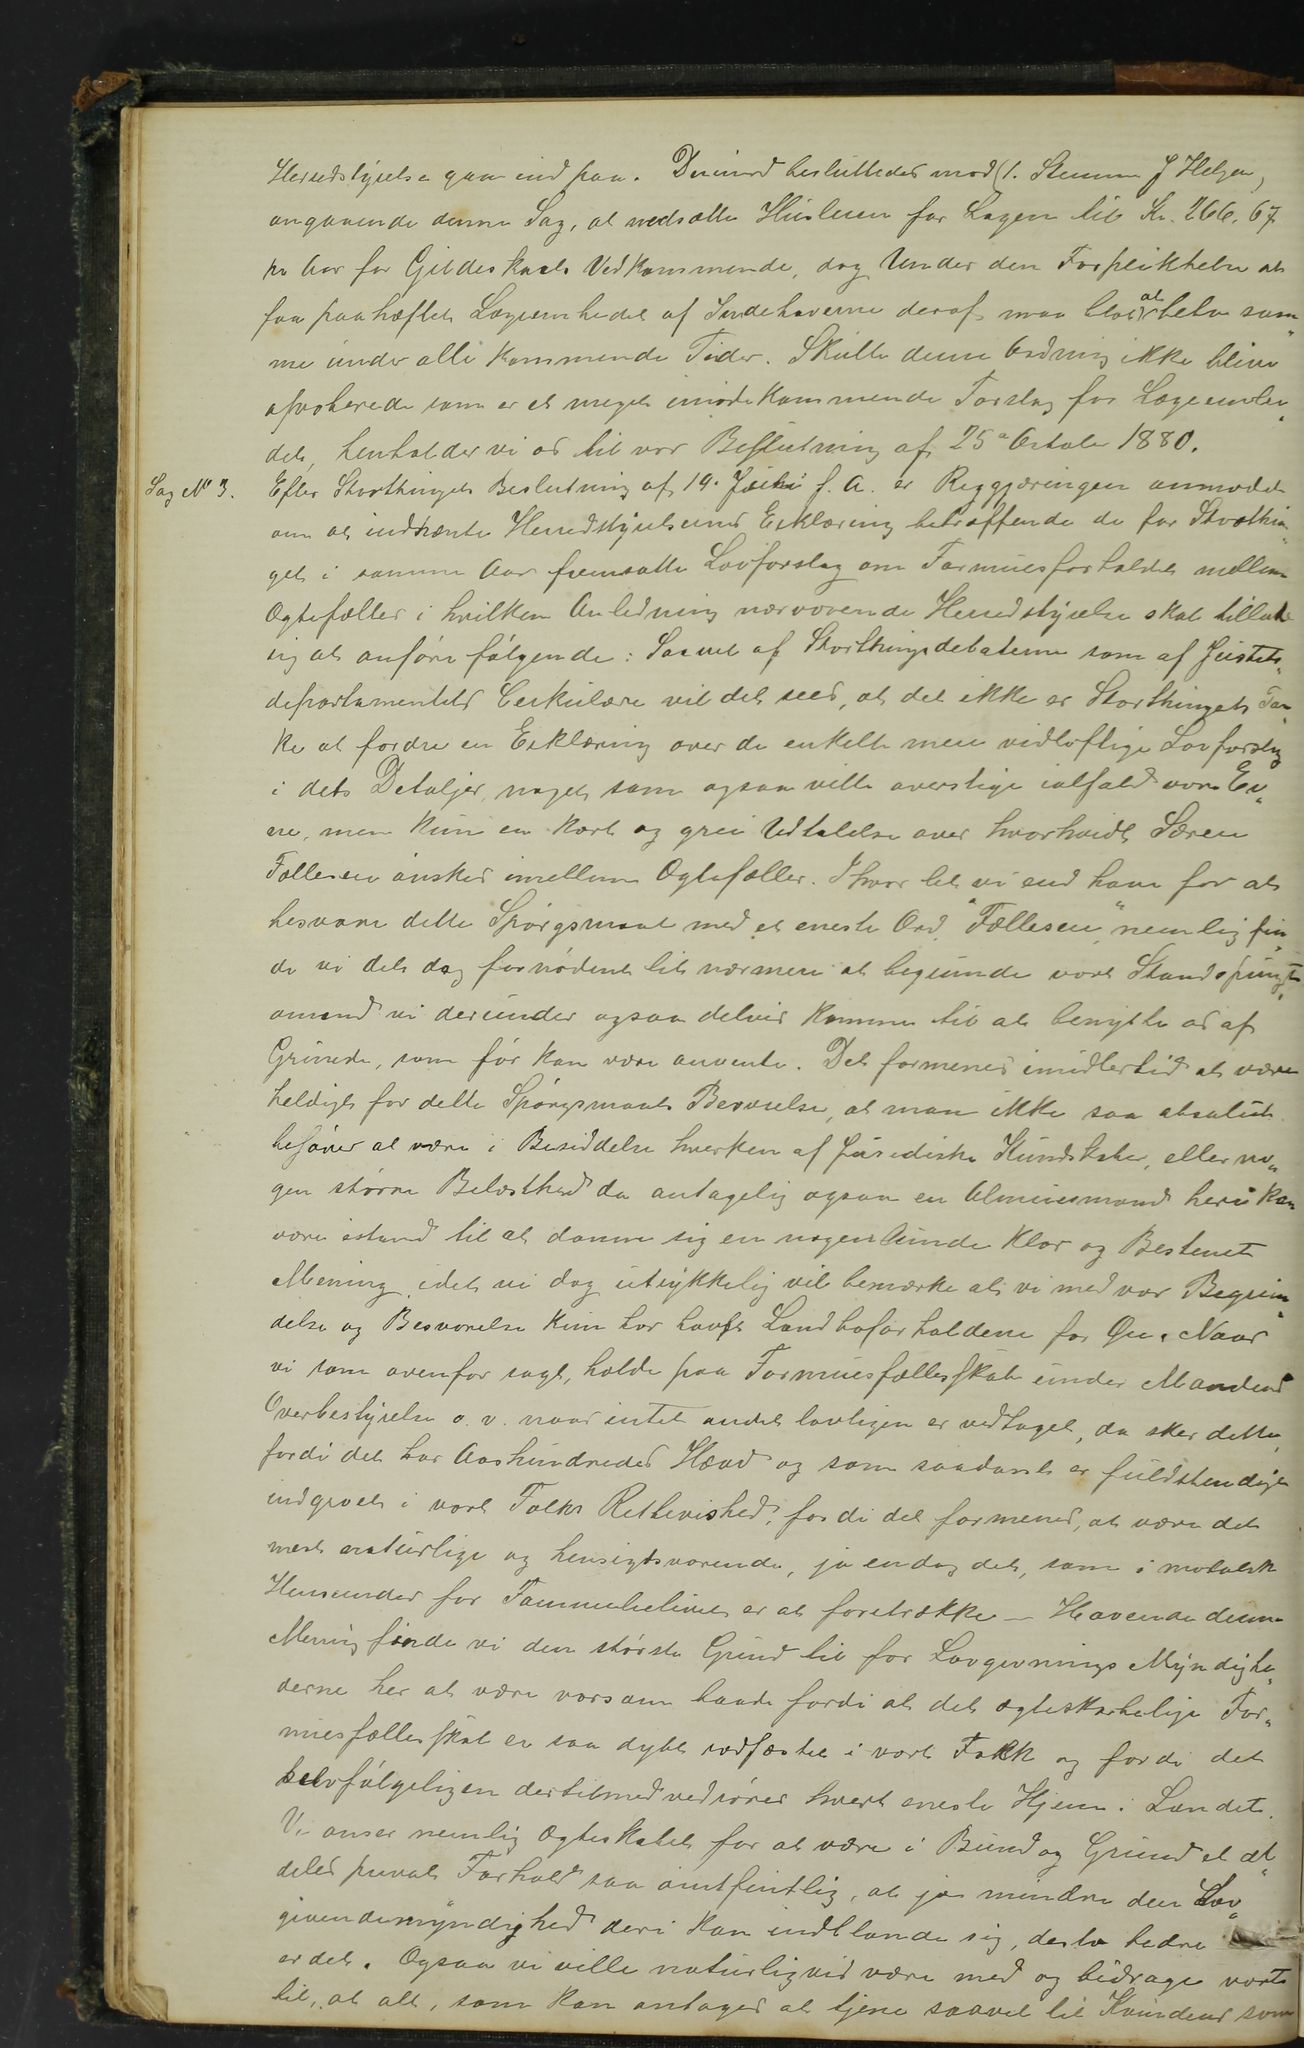 Heredstyrelse gaa ind paa. Derimod besluttedes mod (1. Stemme J Helgesen,
angaaende denne Sag, at nedsætte Huslien for Lægen til Kr. 266,67
pr Aar for Gildeskaals Vedkommende, dog Under den Forpliktelse at
faa paahæftet Lægeembedet at Indehaverne deraf maa love at betale sam„
me under alle kommende Tider. Skulle denne Ordning ikke blive
aproberede som er et meget imødekommende Forslag for Lægeembe„
det, henholder vi os til vor Beslutning af 25de October 1880.
Sag No 3. Efter Storthingets Beslutning af 19. Juni f. A. er Reggjæringen anmodet
om at indhænte Herredstyrelsernes Erklæring betræffende de for Storthin„
get i samme Aar fremsatte Lovforslag om Formuesforholdet mellem
Ægtefæller i hvilken Anledning nærværende Herredstyrelse skal tillade
sig at anføre følgende: Saavel af Storthingsdebaterne som af Justits„
departementets Cerkulære vil det sees, at det ikke er Storthingets Tan„
ke at fordre en Erklæring over de enkelte mere vidløftige Lovforslag
i dets Detaljer, noget som ogsaa ville overstige ialfald vore Ev„
ne, men kun en kort og grei Udtalelse over hvorhvidt Særeie
Fælleseie ønskes imellem Ægtefæller. I hvor let vi end have for at
besvare dette Spørgsmaal med et eneste Ord „Fælleseie„ nemlig fin„
de vi det dog fornødent lit nærmere at begrunde vort Standspungt
omend vi derunder ogsaa delvis komme til at benytte os af
Grunde, som før kan være anvente. Det formenes imidlertid at være
heldigt for dette Spørgsmaals Besvarelse, at man ikke saa absolut
behøver at være i Besiddelse hverken af Juridiske Kundskaber, eller no„
gen større Belæsthed da antagelig ogsaa en Almuesmand heri kan
være istand til at danne sig en nogenlunde klar og Bestemt
Mening, idet vi dog utrykkelig vil bemærke at vi med vor Begrun„
delse og Besvarelse kun har havft Landboforholdene for Øie. Naar
vi som ovenfor sagt, holde paa Formuesfællesskabe under Mandens
Overbestyrelse o. v. naar intet andet lovligen er vedtaget, da sker dette,
fordi det har Aarhundredes Hævd og som saadant er fuldstendigt
indgroet i vort Folks Retbevished, fordi det formenes, at være det
mest naturlige og hensigtsvarende, ja endog det, som i moralsk
Henseender for Fammelielivet er at foretrække – Havende denne
Mening finde vi den største Grund til for Lovgivnings Myndighe„
derne her at være varsom baade fordi at det ægteskabelige For„
muesfællesskab er saa dybt rodfæstet i vort Folk og fordi det
selvfølgeligen dertilmed vedrører hvert eneste Hjem i Landet.
Vi anser nemlig Ægteskabet for at være i Bund og Grund et al„
deles privat Forhold saa ømtfintlig, at jo mindre den Lov„
givendemyndighed deri kan indblande sig, desto bedre
er det. Ogsaa vi ville naturligvis være med og bidrage vort
til, at alt, som kan antages at tjene saavel til Kvindens som